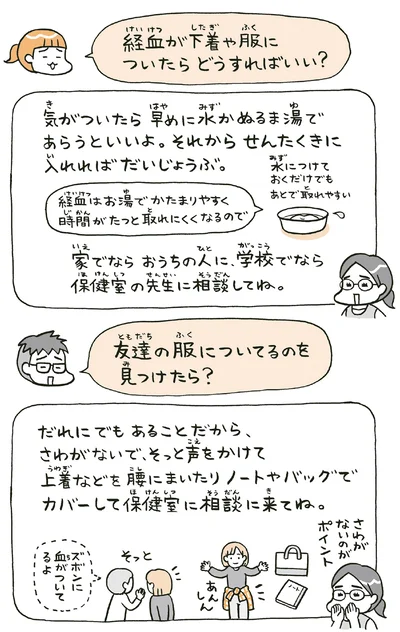 経血が下着や服に
ついたら どうすればいい?
気がついたら 早めに水かぬるま湯で
あらうといいよ。それから せんたくきに
入れれば だいじょうぶ。
経血はお湯で かたまりやすく
時間がたつと取れにくくなるので
水につけて
おくだけでも
あとで取れやすい
家でなら おうちの人に、学校でなら
保健室の先生に相談してね。
友達の服についてるのを
見つけたら?
だれにでも あることだから、
さわがないで、そっと声をかけて
上着などを 腰にまいたり ノートやバッグで
カバーして保健室に相談に来てね。
ズボンに
血がついて
るよ
そっと
あんしん
さわが
ないのが
ポイント